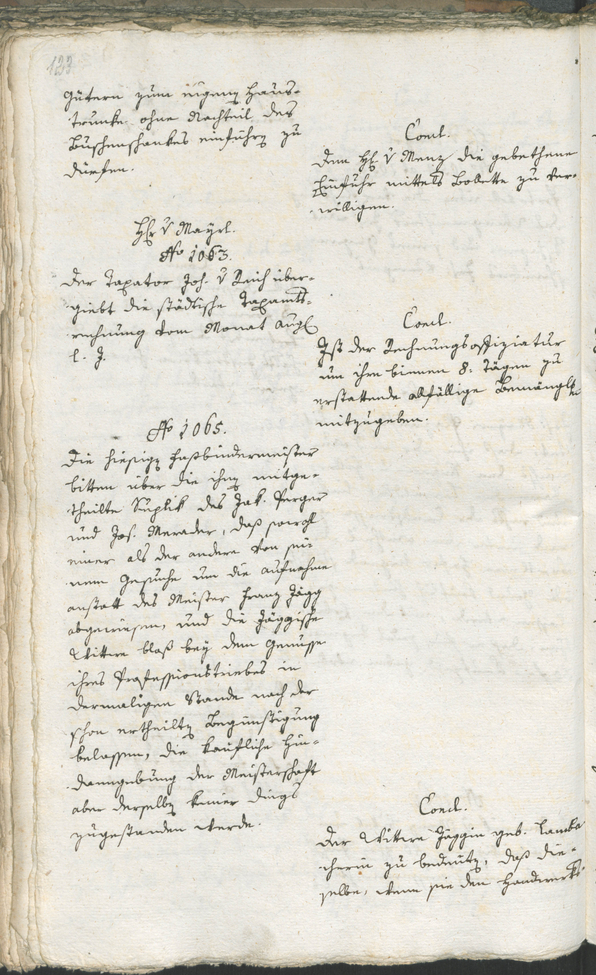 133
Gütern zum eigenen Haus-
trunke ohne Nachteil des
Buschenschankes einführen zu
dürfen.
Concl.
Dem H. v Menz die gebethene
Einfuhr mittels Bolette zu ver-
willigen.
Hr v Mayrl.
No 1063.
Der Taxator Joh. v Reich über-
giebt die städtische Taxamts-
rechnung vom Monat Aug
l. J.
Concl.
Ist der Rechnungsoffiziatur
um ihre binnen 8: Tägen zu
erstattende allfällige Bemängl
mitzugeben.
No 1065.
Die hiesige Faßbindermeister
bitten über die ihnen mitge-
theilte Suplik des Jak. Perger
und Jos. Merader, daß sowohl
einer als der andere von sei-
nem Gesuche um die Aufnahme
anstatt des Meister Franz Jägg
abgewiesen, und die Jäggische
Wittwe bloß bey dem Genusse
ihres Professionstriebes in
dermaligen Stande nach der
schon ertheilten Begünstigung
belassen, die kaufliche Hin-
danngebung der Meisterschaft
aber derselben keiner Dings
zugestanden werde.
Concl.
Der Wittwe Jäggin geb.
cherin zu bedeuten, daß die-
selbe, wenn sie den Handwerks-